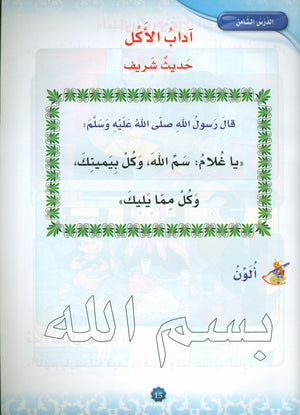 الدرس الثامن
آدابُ الأَكْل
حَديثٌ شَريف
قالَ رَسولُ اللهِ صَلّى اللهُ عَلَيْهِ وَسَلَّمَ:
«يا غُلامُ: سَمِّ اللهَ، وَكُلْ بِيَمينِكَ،
وَكُلْ مِمّا يَليكَ»
أُلَوِّنُ
بسم الله
١٥